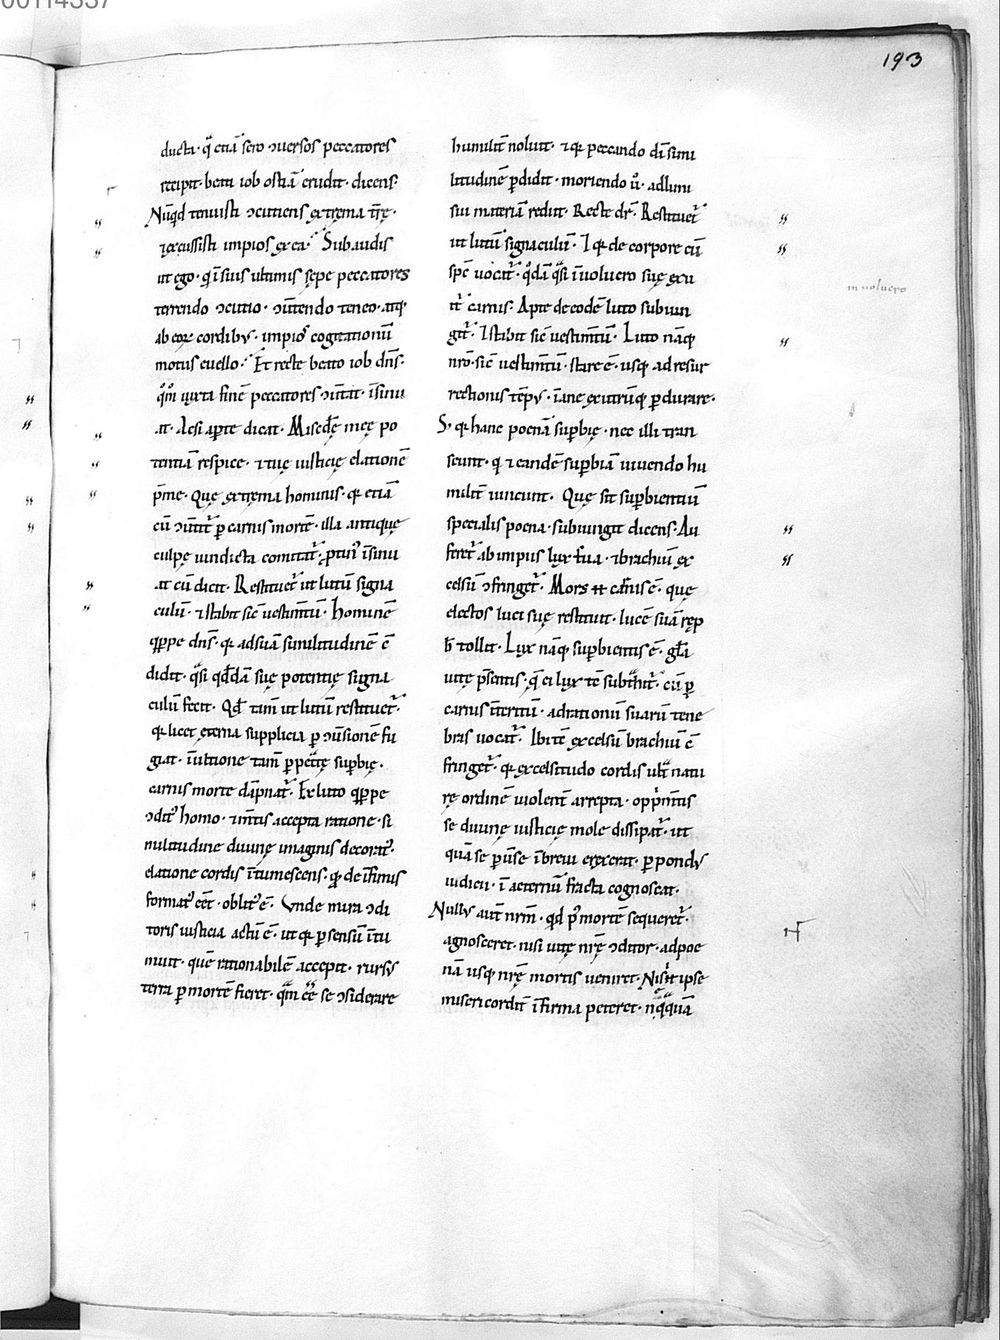 00114337
193
ducta· q̄ etiā sero ɔuersos peccatores
recipit· beatū iob ostiā erudit· dicens·
Nūqd tenuisti ɔcutiens extrema tr̄ę·
⁊excussisti impios ex ea· Subaudis
ut ego· qͥ in suis ultimis sępe peccatores
terrendo ɔcutio· ɔt̄endo teneo· atq·
ab eoꝝ cordibꝰ· impioꝝ cogitationū
motus euello· Et recte beato iob dn̄s·
qm̄ iuxta finē peccatores ɔuertat· īsinu
at· Ac si aperte dicat· Misedię meę po
tentiā respice· ⁊ tuę iusticię elationē
p̄me· Quę extrema hominis· qꝫ etiā
cū ɔuertit̄ ꝑ carnis mortē· illa antiquę
culpę uindicta comitat̄· ptinꝰ īsinu
at cū dicit· Restituet̄ ut lutū signa
culū· ⁊ stabit sic̄ uestim̄tū· Hominē
quippe dn̄s· qꝫ ad suā similitudinē ɔ̄
didit· qͣsi qddā suę potentię signa
culū fecit· Qd̄ tam̄ ut lutū restituet̄·
qꝫ licet ęterna supplicia ꝑ ɔuersionē fu
giat· īultione tam̄ ꝑpetratę supbię·
carnis morte dāpnat̄· Ex luto quippe
ɔditꝰ homo· ⁊ mentis accepta ratione· si
militudine diuinę imaginis decoratꝰ·
elatione cordis ītumescens· qꝫ de īfimis
formatꝰ eēt· oblitꝰ ē· Vnde mira ɔdi
toris iusticia actū ē· ut qꝫ ꝑ sensū ītu
muit· quē rationabilē accepit· rursꝰ
terra ꝑ mortē fieret· qm̄ eē se ɔsiderare
humilit̄ noluit· ⁊ qꝫ peccando dī simi
litudinē ꝑdidit· moriendo ū· ad limi
sui materiā redit· Recte dr̄· Restituet̄
ut lutū signaculū· Et qꝫ de corpore cū
spc̄ uocat̄· qͦdā qͣsi īuoluero suę exu
it̄ carnis· Apte de eodē luto subiun
git̄· Et stabit sic̄ uestim̄tū· Luto nāqꝫ
nr̄o· sic̄ uestim̄tū· stare ē· usqꝫ ad resur
rectionis tēpꝰ· inane exutūqꝫ ꝑdurare·
Sꝫ qꝫ hanc poenā supbię· nec illi tran
seunt· qͥ ⁊ eandē supbiā uiuendo hu
milit̄ uincunt· Quę sit supbientiū
specialis poena· subiungit dicens· Au
feret̄ ab impiis lux sua· ⁊ brachiū ex
celsū ɔfringet̄· Mors et̄ carnis ē· quę
electos luci suę restituit· lucē suā rep
b̄ tollit· Lux nāqꝫ supbientis ē· gl̄a
uitę p̄sentis· q̄ ei lux tē subt̄hit̄· cū ꝑ
carnis īteritū· ad rationū suarū tene
bras uocat̄· Ibi tē excelsū brachiū ɔ̄
fringet̄· qꝫ excelsitudo cordis ultͣ natu
rę ordinē uiolent̄ arrepta· opp̄mentis
se diuinę iusticię mole dissipat̄· ut
quā se ꝑuse ī breui erexerit· ꝑ pondꝰ
iudicii· ī aeternū fracta cognoscat·
Nullꝰ aut̄ nr̄m· qd̄ pꝰ mortē sequeret̄·
agnosceret· nisi uitę nr̄ę ɔditor· ad poe
nā usqꝫ nr̄ę mortis ueniret· Nisi et ipse
misericordit̄ īfirma peteret· nqͣquā
inuoluero